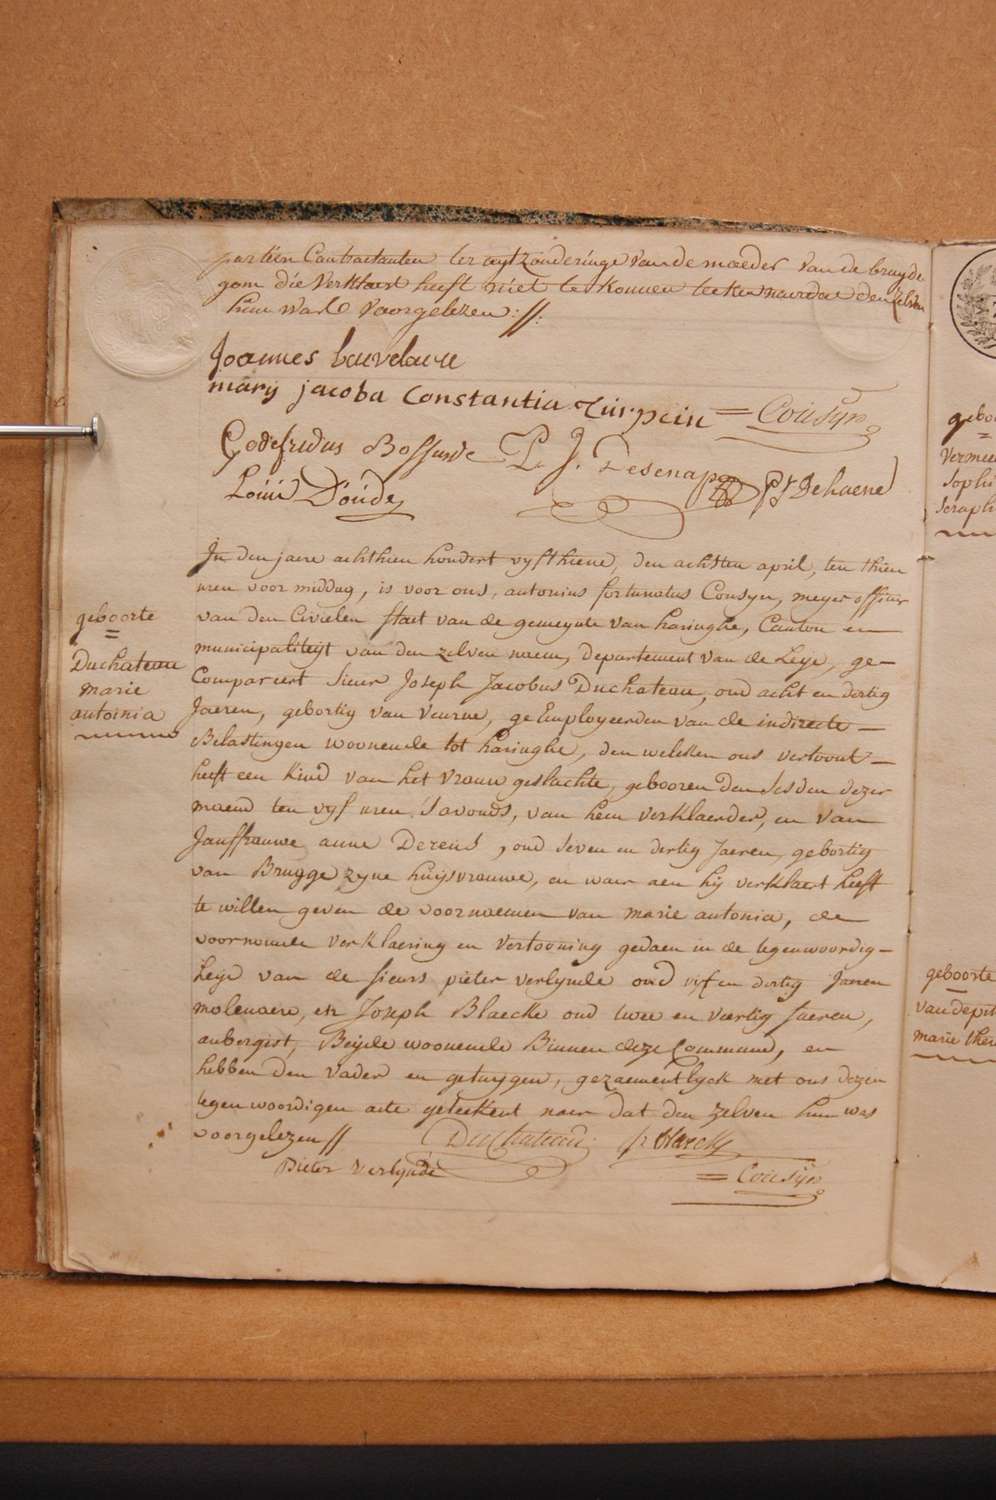 partien Contractanten ter uytzonderinge van de moeder van de bruyde
gom die verklaert heeft niet te konnen teekenen naer dat den zelven
hun was voorgelezen://:
Joannes
mary jacoba Constantia Turpein = Cousyn
Godefridus Bossaerde P. J. Desenap P J Dehaene
Louis D'oude
In den jaere achthien hondert vyfthiene, den achsten april, ten thien
uren voor middag, is voor ons, antonius fortunatus Cousyn, meyer officier
van den Civielen staet van de gemeynte van haringhe, Canton en
municipaliteyt van den zelven naem, departement van de Leye, ge-
Compareert Sieur Joseph Jacobus Duchateau, oud acht en dertig
Jaeren, gebortig van Veurne, geEmployeerden van de indirecte
Belastingen woonende tot haringhe, den welken ons vertoont
heeft een kind van het vrouw geslachte, gebooren den sesden dezer
maend ten vyf uren 's avonds, van hem verklaerder, en van
Jouffrauwe anne Derens, oud seven en dertig Jaeren, gebortig
van Brugge zyne huysvrouwe, en waer aen hy verklaert heeft
te willen geven de voornaemen van marie antonia, de
voornoemde verklaering en vertooning gedaen in de tegenwoordig-
heyd van de sieurs pieter verlynde oud vyf en dertig Jaeren
molenaere, en Joseph Blaecke oud twee en veertig Jaeren,
aubergist, Beyde woonende Binnen deze Commune, en
hebben den vader en getuygen, gezaementlyck met ons dezen
tegenwoordigen acte geteekent naer dat den zelven hun was
voorgelezen // Duchateau J: Blaecke
Pieter Verlynde = Cousyn
geboorte
=
Duchateau
marie
antoinia
geboo
=
vermee
Sophi
Seraph
geboorte
vandepit
marie ther